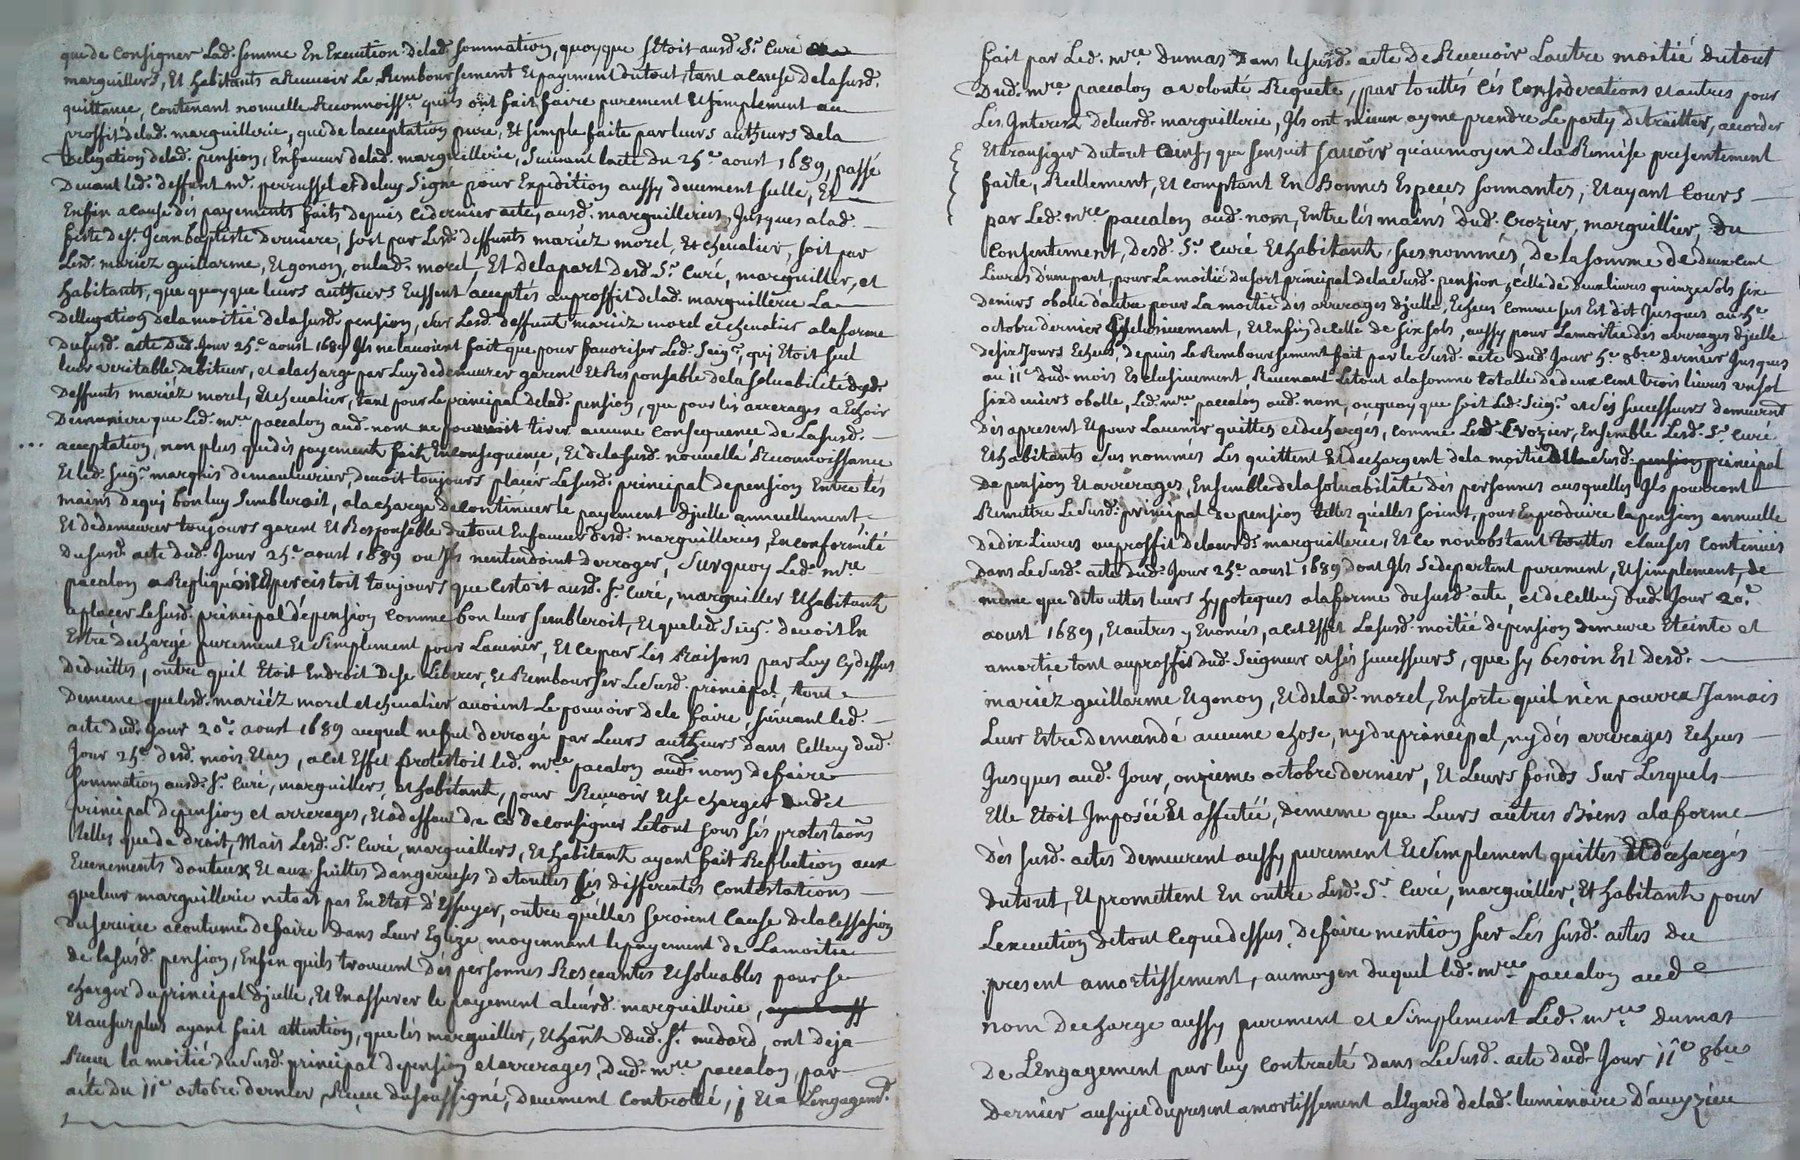 que de Consigner Lad. somme En Execution delad. sommation, quoyque s'Etoit ausd. Sr. Curé
marguilliers, Et habitants a Recevoir Le Remboursement Et payement dutout, tant acause delasusd.
quittance, Contenant nouvelle Reconnoissce. quils ont fait faire purement Et simplement au
proffit delad. marguillerie, que de lacceptation pure, Et simple faite par leurs autheurs dela
Delegation delad. pension, Enfaveur delad. marguillerie, suivant lacte du 25e. aoust 1689, passé
Devant led. deffunt me. perrussel et deluy signé pour Expedition aussy deuement scelle, Et
Enfin acause des payements faits depuis cedernier acte, ausd. marguilleries, Jusques alad.
feste de St. Jean baptiste derniere, soit par Lesd. deffunts mariéz morel, Et chevalier, soit par
Lesd. mariez guillarme, Et gonon, oulad. morel, Et delapart desd. Sr. Curé, marguiller, et
habitants, que quoyque leurs autheurs Eussent acceptés auproffit delad. marguillerie La
Dellegation delamoitié delasusd. pension, sur Lesd. deffunts mariéz morel et chevalier alaforme
Dusud. acte dud. Jour 25e. aoust 1689 Ils ne lauoient fait que pour favoriser Led. Seigr. qui Etoit seul
leur veritable debiteur, et alacharge par Luy dedemeurer garent Et Responsable delasolvabilité desd.
Deffunts mariéz morel, Et chevalier, tant pour Le principal delad. pension, que pour les arrerages a Echoir
Demaniere que Led. mre. paccalon aud. nom ne pouvoit tirer aucune consequence de Lasusd.
acceptation, non plus que des payements faits Enconsequence, Et delasusd. nouvelle Reconnoissance
Et led. Seigr. marquis demaulevrier, devoit toujours placer Lesusd. principal depension Entre les
mains dequi bon luy sembleroit, alacharge decontinuer le payement d'jcelle annuellement,
Et dedemeurer toujours garent et Responsable dutout Enfaveur desd. marguilleries, Enconformité
Dusud. acte dud. Jour 25e. aoust 1689 ou Ils nentendoint derroger, surquoy Led. mre.
paccalon a Repliqué quil percistoit toujours que Cestoit ausd. Sr. Curé, marguiller Et habitants
aplacer Lesusd. principal depension Comme bon leur sembleroit, Et queled. Seigr. devoit En
Estre dechargé purement Et simplement pour Lavenir, Et ce par Les Raisons par Luy cydessus
Deduittes, outre quil Etoit Endroit dese Liberer, et Rembourser Lesusd. principal, tout
Dememe quelesd. mariéz morel et chevalier avoient Le pouvoir dele faire, suivant led.
acte dud. Jour 20e. aoust 1689 auquel nefut derrogé par Leurs autheurs dans Celluy dud.
Jour 25e. desd. mois Et an, acet Effet protestoit led. mre. pacalon aud. nom defaire
sommation ausd. Sr. Curé, marguillers, et habitants, pour Recevoir Et se charger dudet
principal depension et arrerages, Et adeffaut de Ce deconsigner Letout sous ses protestaons
telles que de droit, Mais Lesd. Sr. Curé, marguillers, Et habitants ayant fait Reflection aux
Evenements douteux Et aux suittes dangereuses detouttes ces differentes Contestations
queleur marguillerie netoit pas En Etat d'Essuyer, outre quelles seroient Cause delacessation
duservice acoutumé defaire dans Leur Eglize, moyennant lepayement de Lamoitie
de lasusd. pension, Enfin quils trouvent des personnes Rescéantes Et solvables pour se
charger duprincipal d'jcelle, Et En assurer le payement aleurd. marguillerie,
Et ausurplus ayant fait attention, que les marguiller, Et habnts dud. St. medard, ont deja
Receu la moitié dusud. principal depension et arrerages, dud. mre. paccalon, par
acte du 11e octobre dernier, Receu dusoussigné, deuement Controllé, Et a L'engagemt.
fait par Led. mre. Dumas dans lesusd. acte de Recevoir Lautre moitié dutout
Dud. mre. paccalon avolonté Requete, par touttes Ces Considerations et autres pour
Les Interest deleurd. marguillerie, Ils ont mieux aymé prendre Le party detraitter, accorder
Et transiger dutout Cainsy que sensuit savoir qu'aumoyen dela Remise presentement
faite, Reellement, Et comptant En Bonnes Especes sonnantes, Et ayant Cours
par Led. mre. paccalon aud. nom, Entre les mains dud. Crozier, marguillier, du
Consentement, desd. Sr. Curé Et habitants, susnommés, de lasomme de deux cent
Livres d'une part, pour Lamoitié dusort principal delasusd. pension, celle de deux livres quinze sols six
deniers obolle dautre pour La moitié des arrerages d'jcelle, Echeus Comme sus Est dit Jusques au 5e.
octobre dernier Inclusivement, Et Enfin decelle de six sols, aussy pour Lamoitié des arrerages d'jcelle
desix Jours Echeus, depuis Le Remboursement fait par le susd. acte dud. Jour 5e. 8bre dernier Jusques
au 11e dud. mois Exclusivement, Revenant Letout alasomme totalle dedeux Cent trois livres un sol
six deniers obolle, Led. mre. paccalon aud. nom, ouquoy que soit Led. Seigr. et ses successeurs demeurent
des apresent Et pour Lavenir quittes et decharges, comme Led. Crozier, Ensemble Lesd. Sr. Curé
Et habitants sus nommes Les quittent Et dechargent dela moitié dela susd. pension principal
De pension Et arrerages, Ensemble delasolvabilité des personnes ausquelles Ils pourront
Remettre Lesusd. principal de pension telles quelles soient, pour Enproduire la pension annuelle
Dedix Livres auproffit deleurds. marguillerie, Et ce nonobstant touttes clauses contenues
Dans Lesusd. acte dud. Jour 25e. aoust 1689 dont Ils sedepartent purement, Et simplement, de
meme que detouttes leurs hypoteques alaforme dusud. acte, et decelluy dud. Jour 20e.
aoust 1689, Et autres y Enoncés, acet Effet Lasusd. moitié depension demeure Eteinte et
amortie tant auproffit dud. Seigneur et ses successeurs, que sy besoin Est desd.
mariéz guillarme Et gonon, Et delad. morel, Ensorte quil n'en pourra Jamais
Leur Estre demandé aucune chose, ny duprincipal, ny des arrerages Echeus
Jusques aud. Jour, onzieme octobre dernier, Et Leurs fonds sur Lesquels
Elle Etoit Imposéé Et affectéé, dememe que Leurs autres Biens alaforme
Des susd. actes demeurent aussy purement Et simplement quittes Et decharges
dutout, Et promettent En outre Lesd. Sr. Curé, marguiller, Et habitants pour
Lexecution detout Cequedessus, de faire mention sur Les susd. actes du
present amortissement, aumoyen duquel led. mre. paccalon aud.
nom decharge aussy purement et simplement Led. mre. dumas
de L'Engagement par luy Contracté dans Lesusd. acte dud. Jour 11e 8bre
dernier ausujet dupresent amortissement al'Egard delad. luminaire D'auvezieu